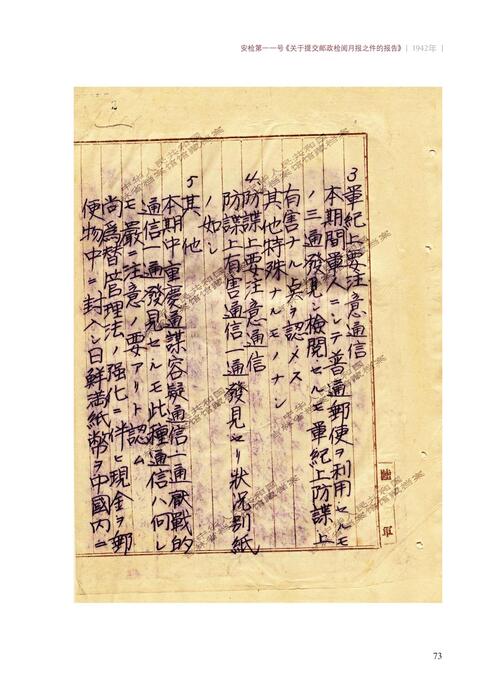 安检第一一号《关于提交邮政检阅月报之件的报告》 | 1942年 |
2
3軍紀上要注意通信
本期間軍人ニシテ普通郵便ヲ利用セルモ
ノ三通發見シ檢閲セルモ軍紀上防諜上
有害ナル点ヲ認メス
其他特殊ナルモノナシ
4防諜上要注意通信
防諜上有害通信一通發見セリ狀況別紙
ノ如シ
5其他
本期中重慶通謀容疑通信一通厭戰的
通信一通發見セルモ此種通信ハ何レ
モ嚴ニ注意ノ要アリト認ム
尚爲替管理法ノ强化ニ伴ヒ現金ヲ郵
便物中ニ封入シ日鮮満紙幣ヲ中國内ニ
73